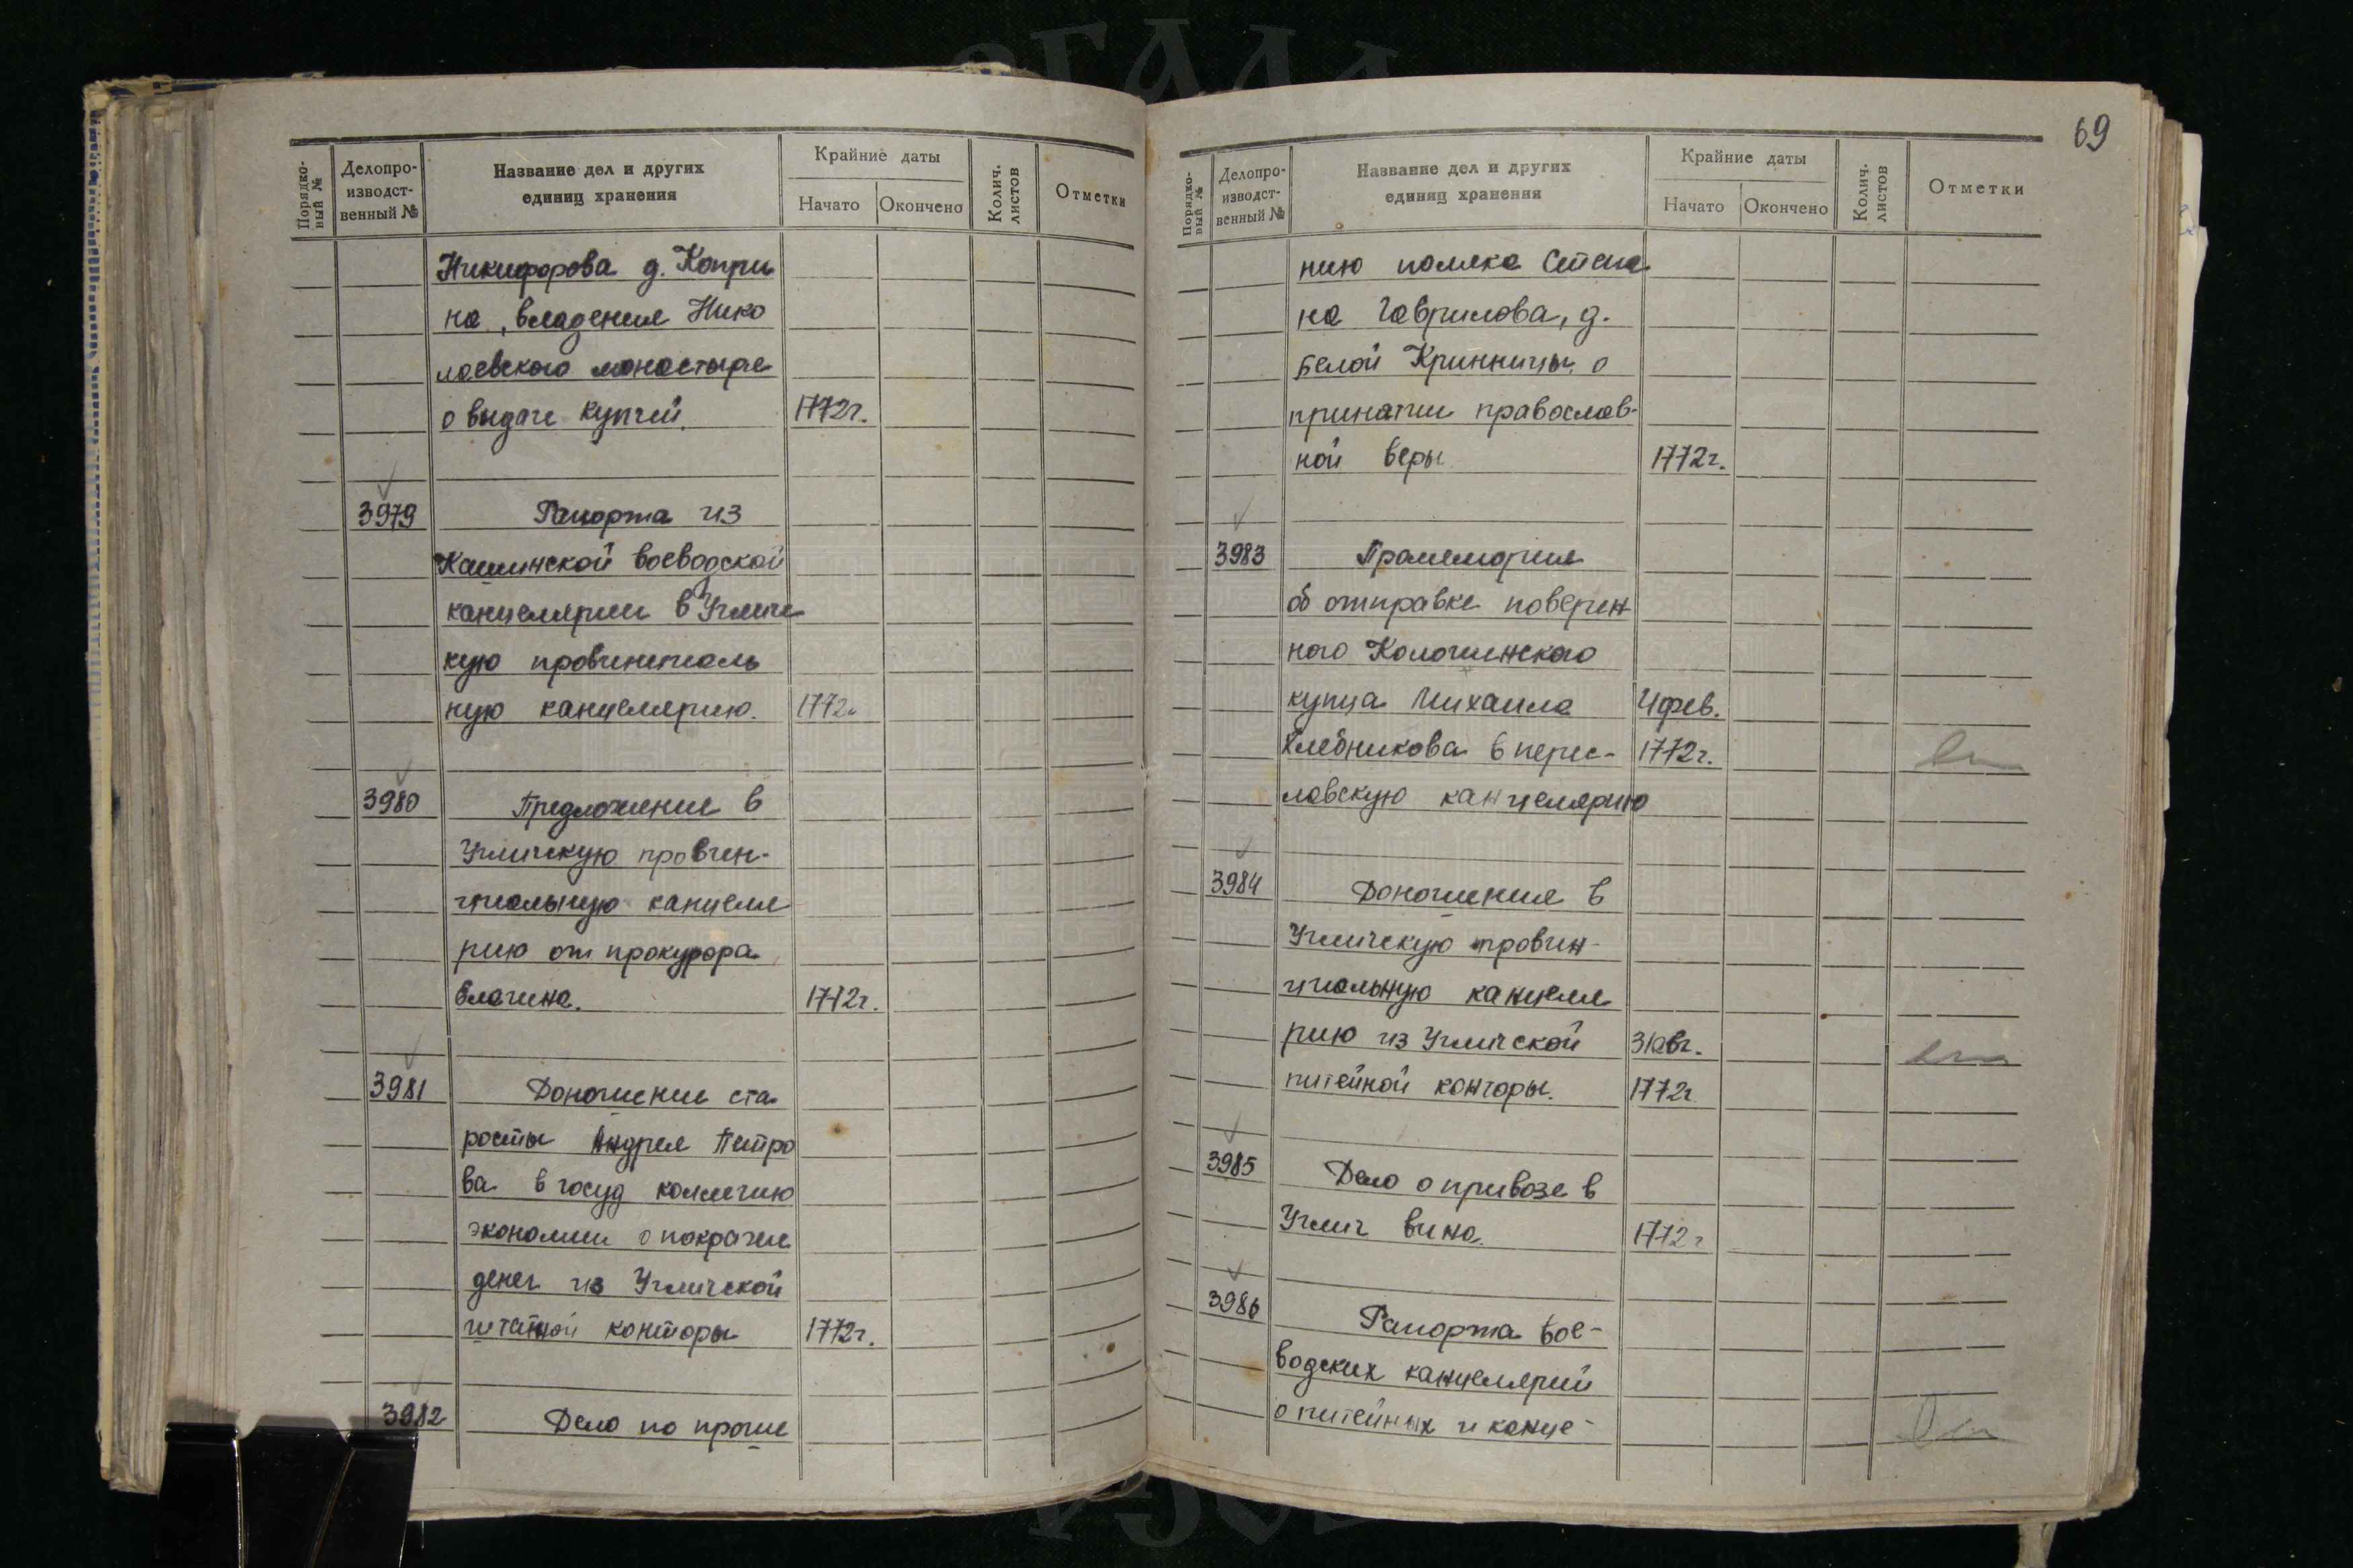 Порядко-
вый №
Делопро-
изводст-
венный №
Название дел и других
единиц хранения
Крайние даты
Начато
Окончено
Колич.
листов
Отметки
Никифорова д. Копри
на, владения Нико
лаевского монастыря
о выдаче купчей. 1772г.
3979 Рапорта из
Кашинской воеводской
канцелярии в Углич
кую провинциаль
ную канцелярию. 1772г
3980 Предложение в
Угличскую провин-
циальную канцеля
рию от прокурора
1772г.
3981 Доношение ста
росты Андрея Петро
ва в госуд коллегию
экономии о покраже
денег из Угличской
штатной конторы 1772г.
3982 Дело по проше
69
Порядко-
вый №
Делопро-
изводст-
венный №
Название дел и других
единиц хранения
Крайние даты
Начато
Окончено
Колич.
листов
Отметки
нию поляка Степа
на Гаврилова, д.
Белой Кринницы о
принятии православ-
ной веры 1772г.
3983 Промемория
об отправке поверен
ного
купца Михаила 4 фев.
Хлебникова в перес- 1772г.
лавскую канцелярию
3984 Доношения в
Угличскую провин-
циальную канцеля
рию из Угличской 31авг.
питейной конторы. 1772г
3985 Дело о привозе в
Углич вина. 1772г
3986 Рапорта вое-
водских канцелярий
о питейных и канце-